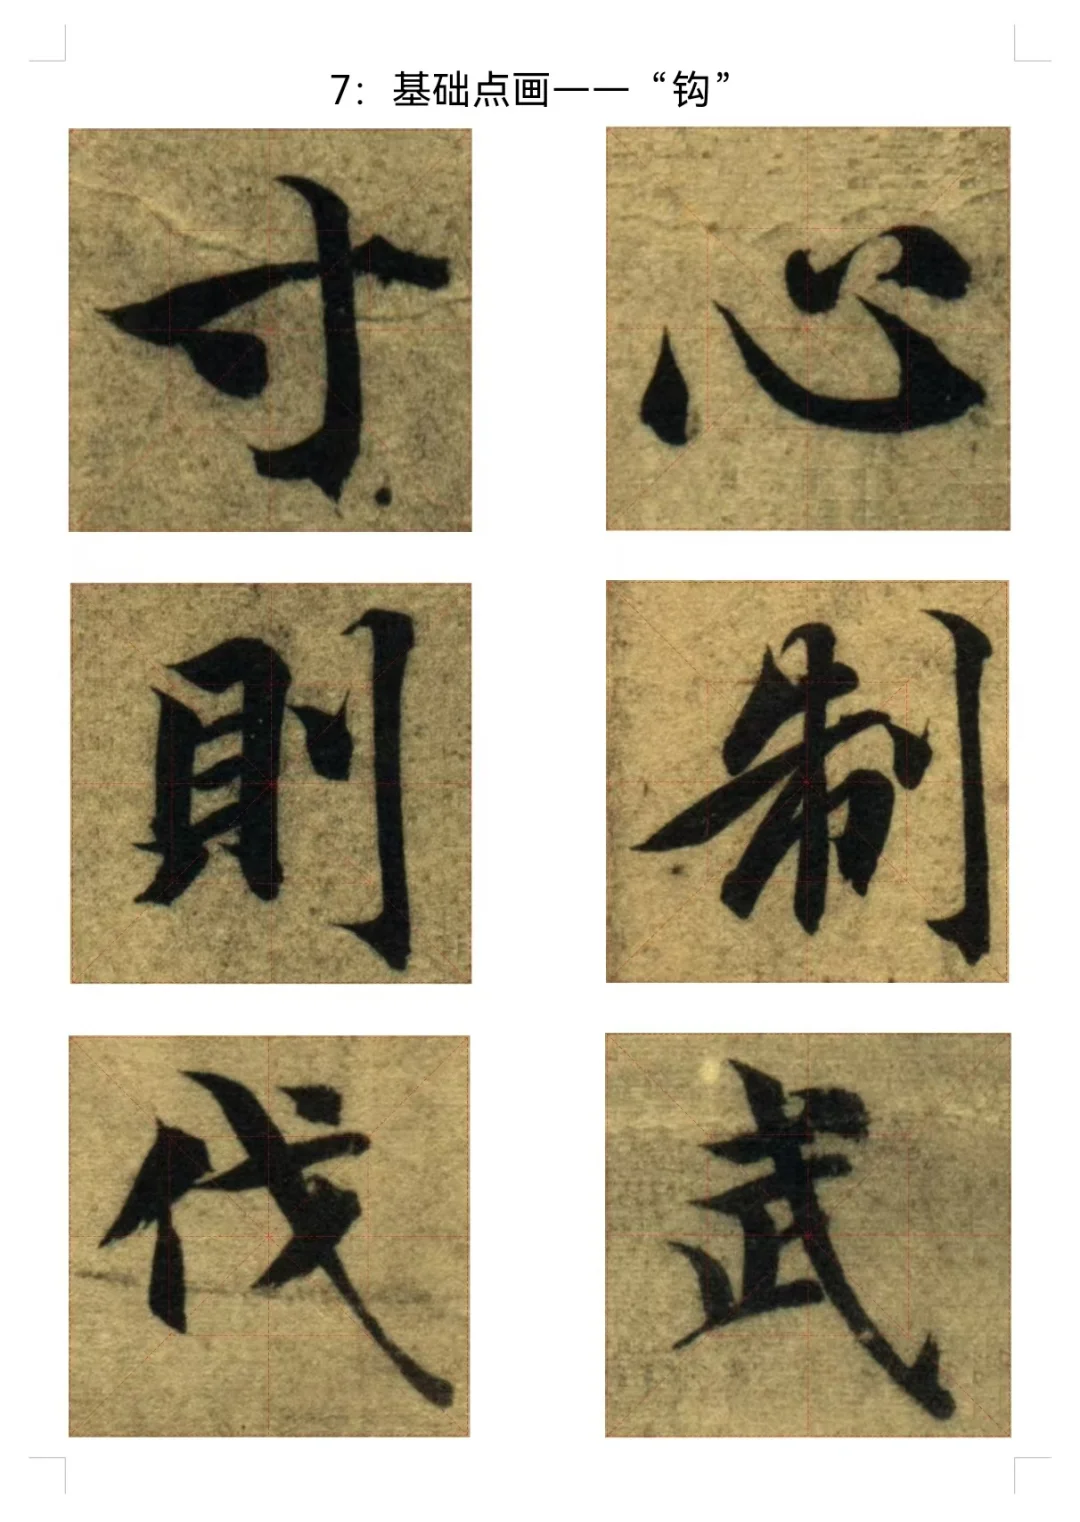 7：基础点画——“钩”
寸 心
則 制
伐 武